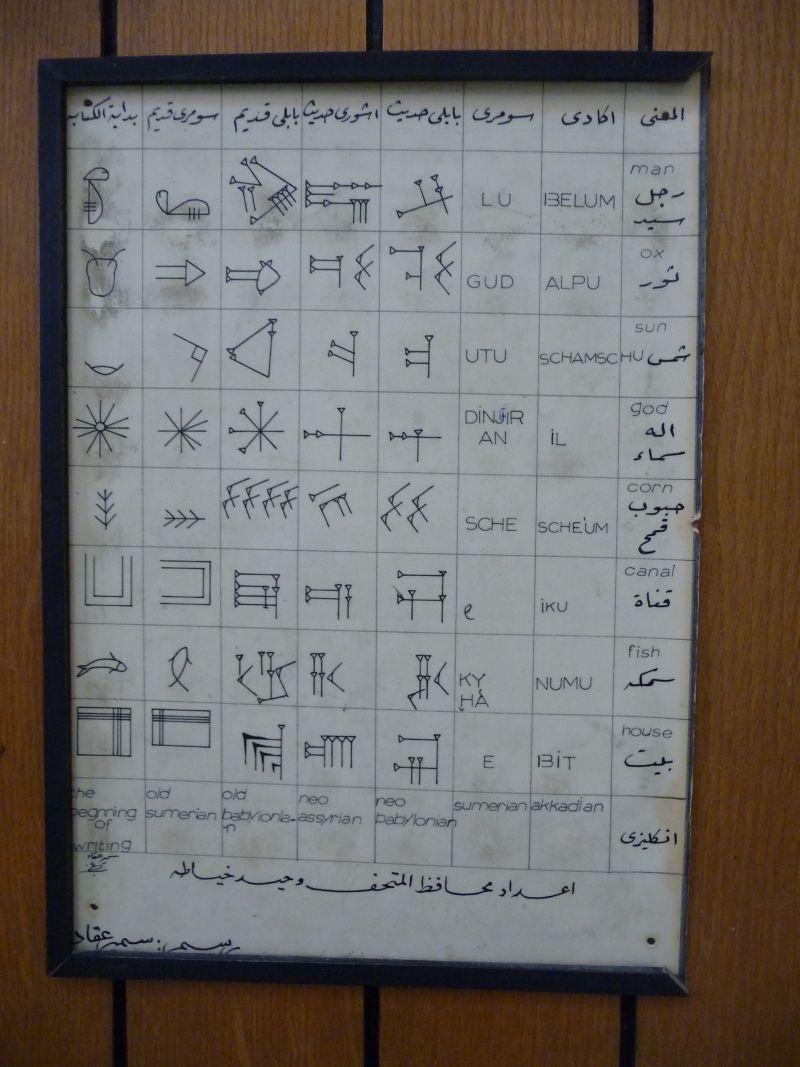 المعنى اكادى سومرى بابلى حديث اشورى حديث بابلى قديم سومرى قديم بداية الكتابه
LU BELUM man
رجل
سيد
GUD ALPU ox
ثور
UTU SCHAMSCHU sun
شمس
DINJIR
AN IL god
اله
سماء
SCHE SCHE'UM corn
حبوب
قمح
e IKU canal
قناة
KY
HA NUMU fish
سمكه
E BIT house
بيت
the
begnning
of
writing
old
sumerian
old
babylonia-
n
neo
assyrian
neo
babylonian
sumerian
akkadian
انكليزى
اعداد محافظ المتحف وحيد خياطه
رسم : سمر عقاد